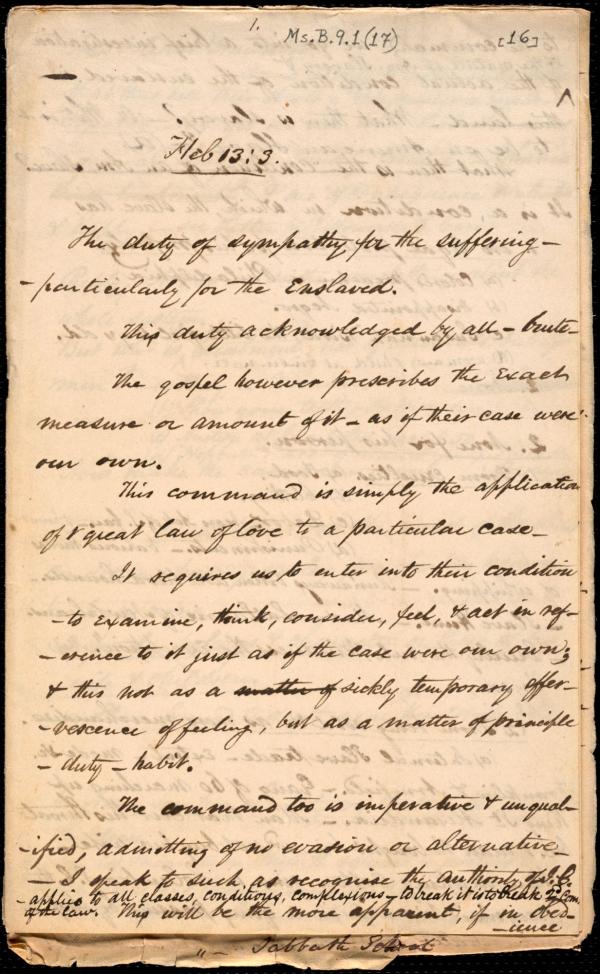 1.
Ms. B. 9. 1 (17)
[16]
Heb 13:3.
The duty of sympathy for the suffering -
- particularly for the Enslaved.
This duty acknowledged by all -
The gospel however prescribes the exact
measure or amount of it - as if their case were
our own.
This command is simply the application
of great law of love to a particular case -
It requires us to enter into their condition
- to examine, think, consider, feel, & act in ref-
- erence to it just as if the case were our own;
& this not as a matter of sickly temporary effer-
- vescence of feeling, but as a matter of principle
- duty - habit.
The command too is imperative & unqual-
- ified, admitting of no evasion or alternative -
- I speak to such as recognise the authority of J. C.
- applies to all classes, conditions, complexions - to break it is to break 2d Com.
of the law. This will be the more apparent, if in obed-
- ience
Sabbath School